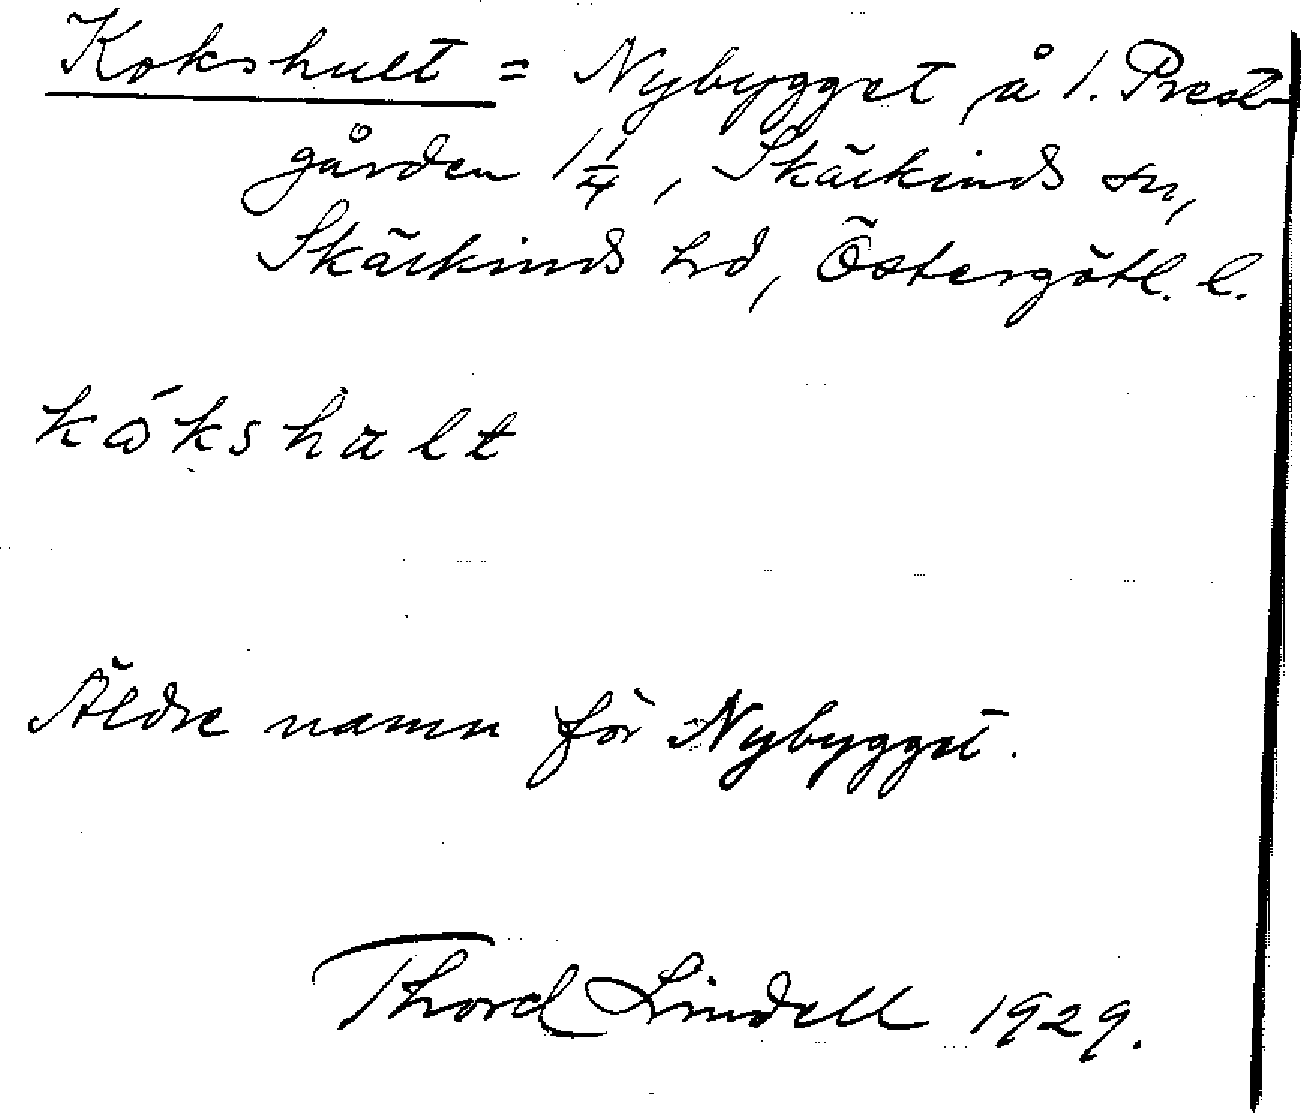 Kokshult = Nybygget å 1. Prest-
gården 1 1/4, Skärkinds sn,
Skärkinds hd, Östergötl. l.
kókshalt
Äldre namn för Nybygget.
Thord Lindell 1929.